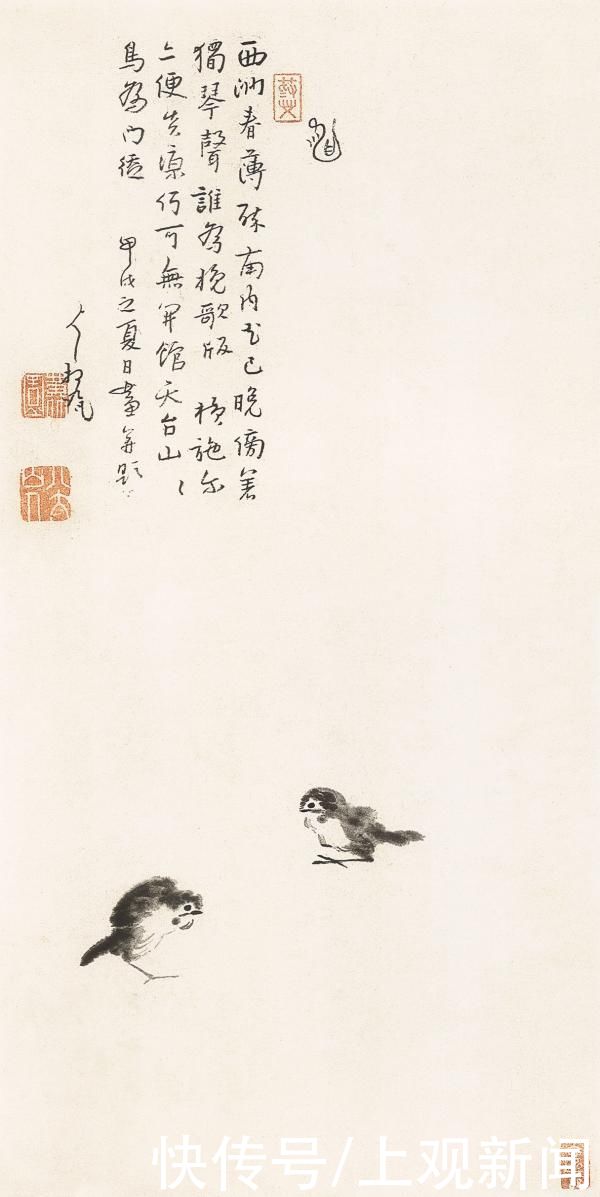 西洲春薄醉南内花已晚傍著
獨琴聲誰為挽歌版 横施尔
亦便炎凉何可無開館天台山〻
鳥為門徒 甲戌之夏日畫并題
八大山人
快传号/上观新闻